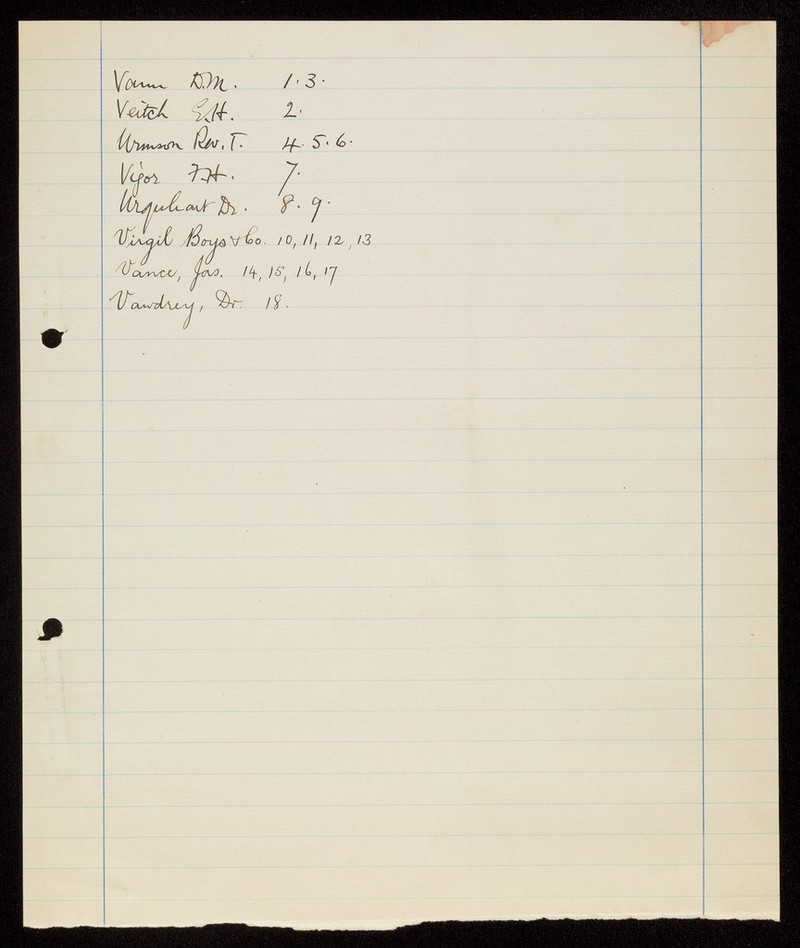 Vann D.M. 1. 3.
Veitch E.H. 2.
Urmson Rev. T. 4. 5. 6.
Vigor F.H. 7.
Urquhart Dr. 8. 9.
Virgil Boys & Co. 10, 11, 12, 13
Vance, Jas. 14, 15, 16, 17
Vawdrey, Dr. 18.